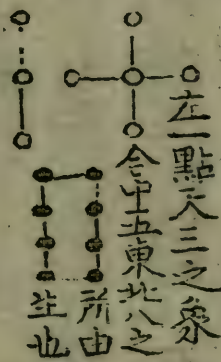 左一點天三之象
合中五東北八之
所由
生也